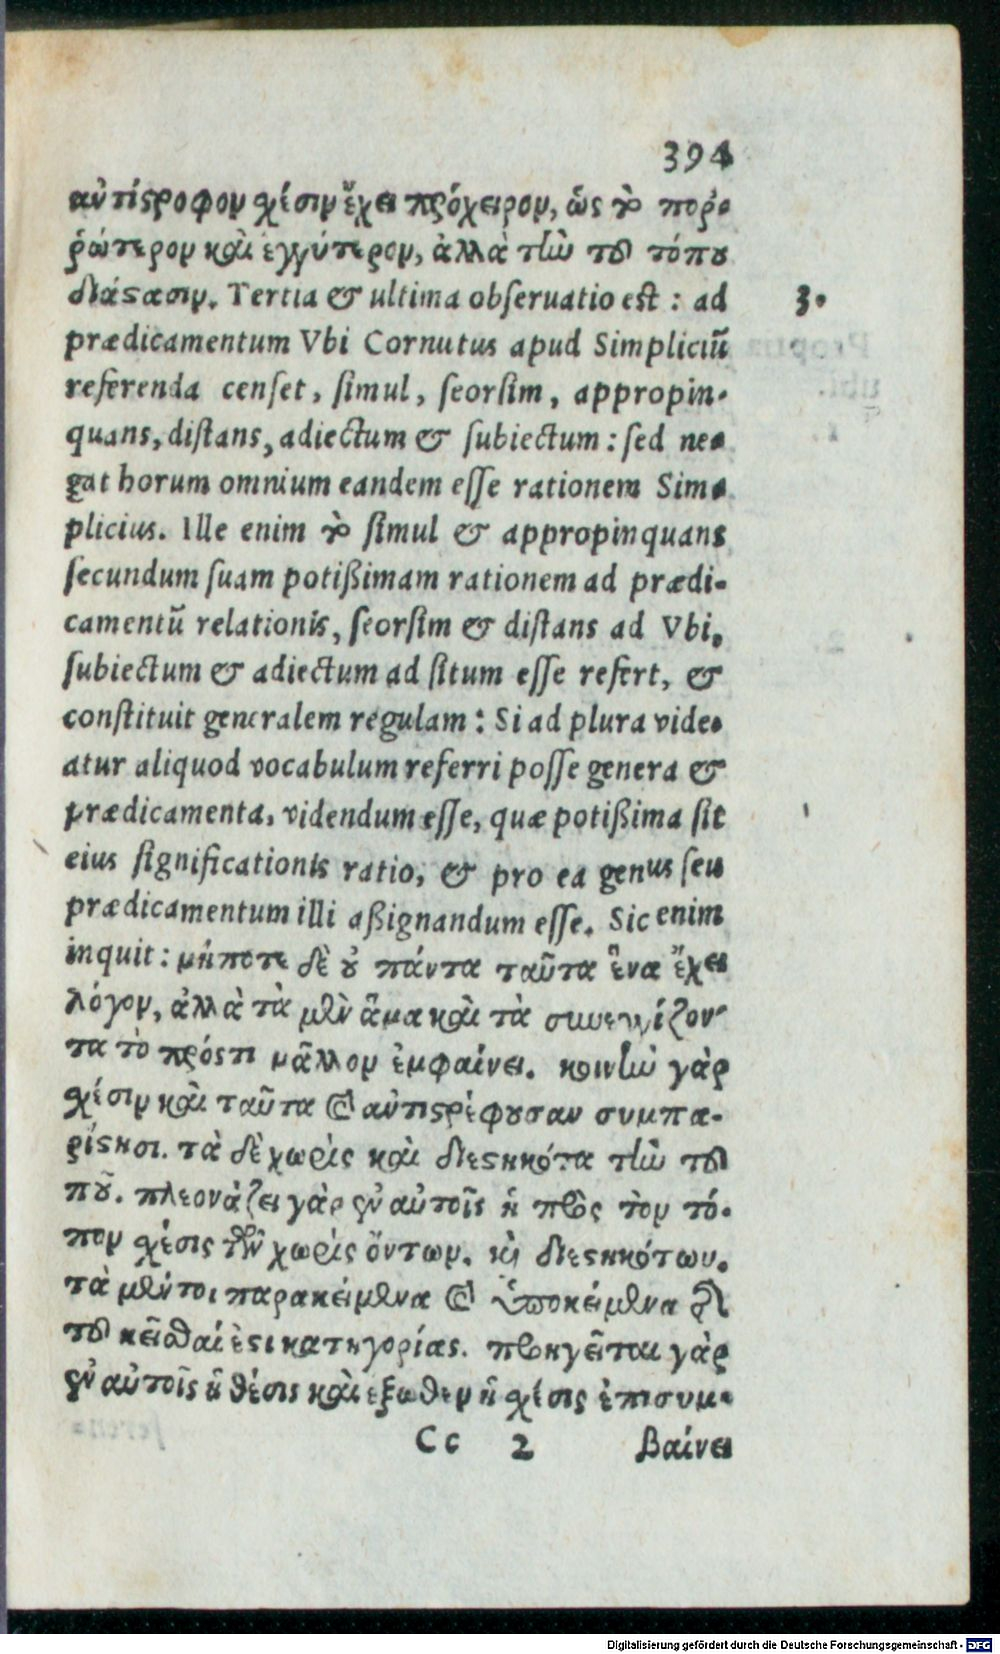 394
ἀντίστροφον σχέσιν ἔχει πρόχειρον, ὡς τὸ πορ-
ρώτερον καὶ ἐγγύτερον, ἀλλὰ τὴν τοῦ τόπου
διάστασιν. Tertia & ultima obſeruatio est : ad
3.
prædicamentum Vbi Cornutus apud Simpliciũ
referenda cenſet, ſimul, ſeorſim, appropin-
quans, diſtans, adiectum & ſubiectum : ſed ne-
gat horum omnium eandem eſſe rationem Sim-
plicius. Ille enim τὸ ſimul & appropinquans
ſecundum ſuam potißimam rationem ad prædi-
camentũ relationis, ſeorſim & diſtans ad Vbi,
ſubiectum & adiectum ad ſitum eſſe refert, &
conſtituit generalem regulam : Si ad plura vide-
atur aliquod vocabulum referri poſſe genera &
prædicamenta, videndum eſſe, quæ potißima ſit
eius ſignificationis ratio, & pro ea genus ſeu
prædicamentum illi aßignandum eſſe. Sic enim
inquit : μήποτε δὲ οὐ πάντα ταῦτα ἕνα ἔχει
λόγον, ἀλλὰ τὰ μὲν ἅμα καὶ τὰ συνεγγίζον-
τα τὸ πρός τι μᾶλλον ἐμφαίνει. κοινὴν γὰρ
σχέσιν καὶ ταῦτα καὶ ἀντιστρέφουσαν συμπα-
ρίστησι. τὰ δὲ χωρὶς καὶ διεστηκότα τὴν τοῦ
ποῦ. πλεονάζει γὰρ ἐν αὐτοῖς ἡ πρὸς τὸν τό-
πον σχέσις τῶν χωρὶς ὄντων. καὶ διεστηκότων.
τὰ μέντοι παρακείμενα καὶ ὑποκείμενα ἐκ
τοῦ κεῖσθαί ἐστι κατηγορίας. προηγεῖται γὰρ
ἐν αὐτοῖς ἡ θέσις καὶ ἔξωθεν ἡ σχέσις ἐπισυμ-
Cc 2 βαίνει
Digitalisierung gefördert durch die Deutsche Forschungsgemeinschaft - DFG